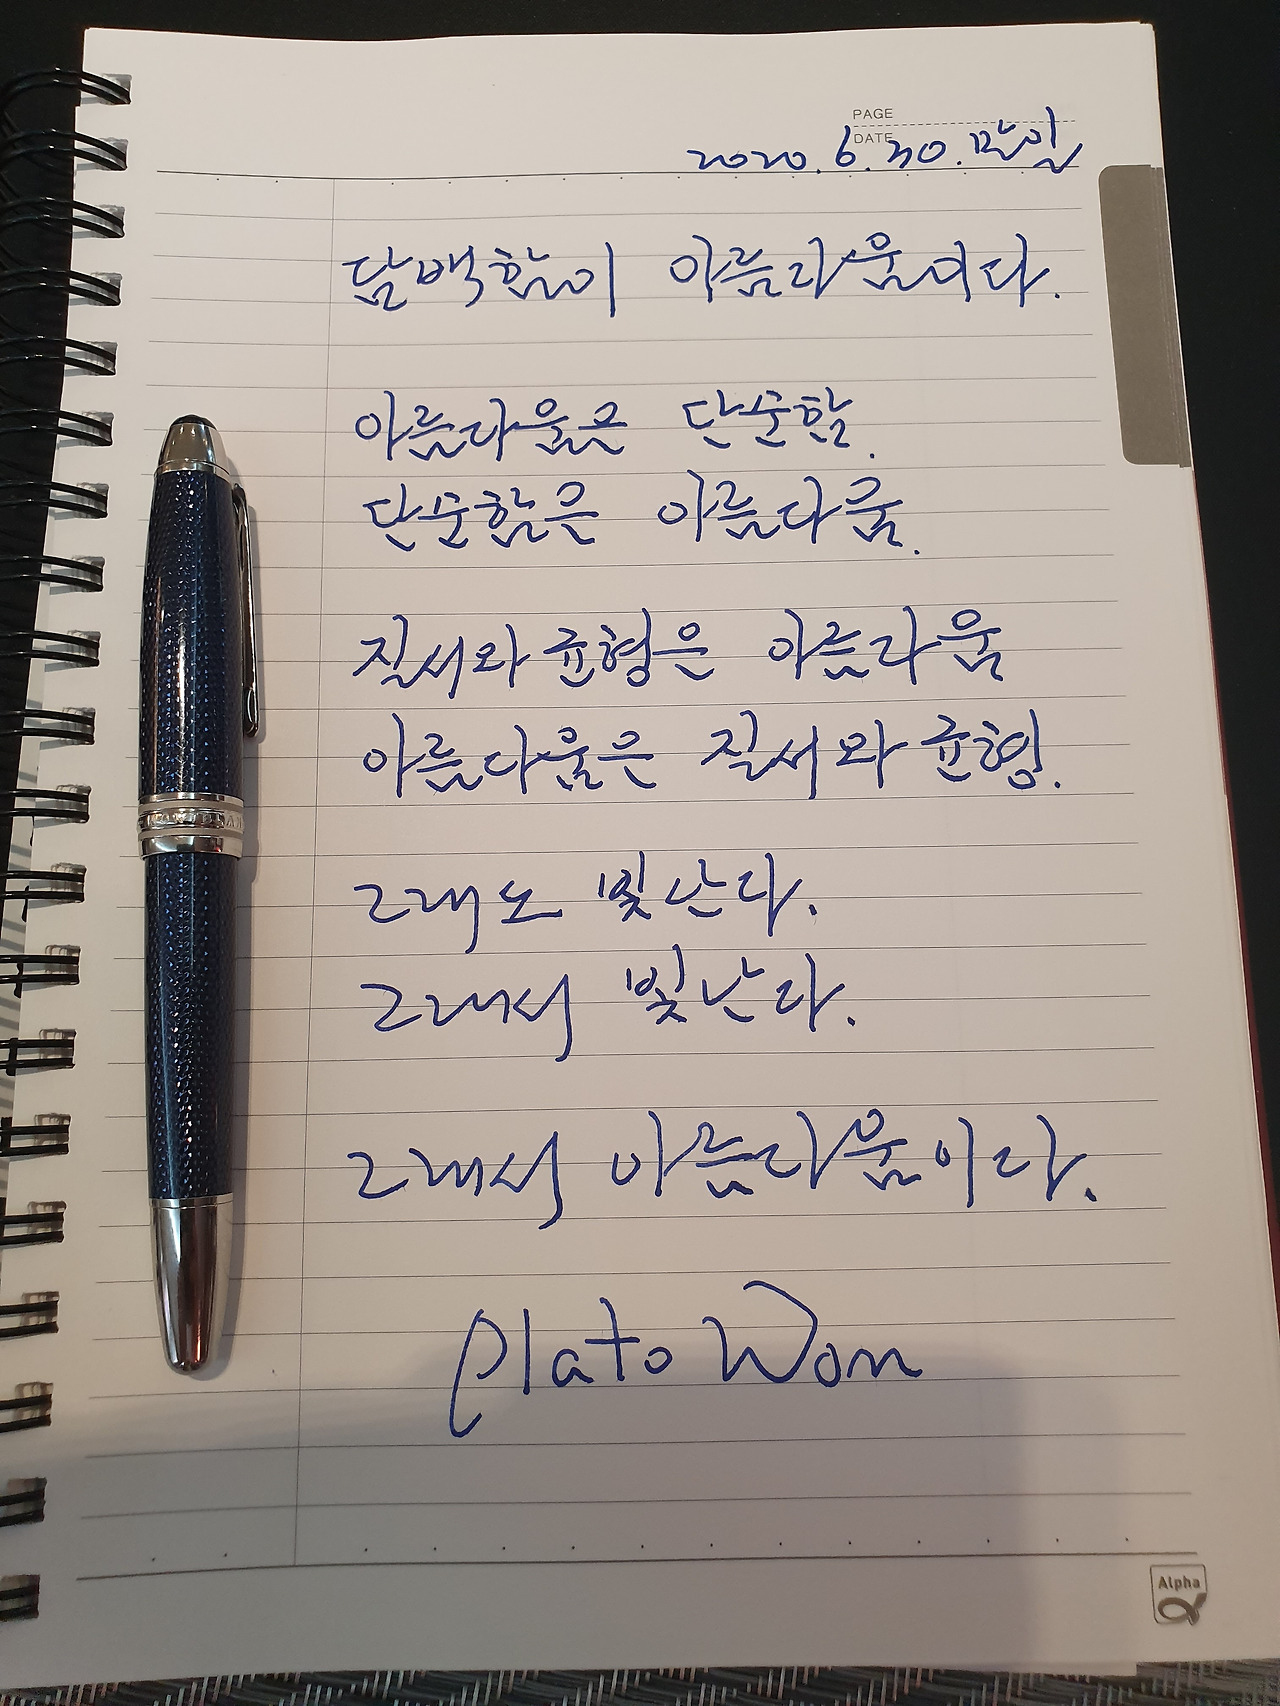 PAGE
DATE
2020.6.30.
담백함이 아름다움이다.
아름다움은 단순함.
단순함은 아름다움.
질서와 균형은 아름다움
아름다움은 질서와 균형.
그래도 빛난다.
그래서 빛난다.
그래서 아름다움이다.
Plato Won
Alpha